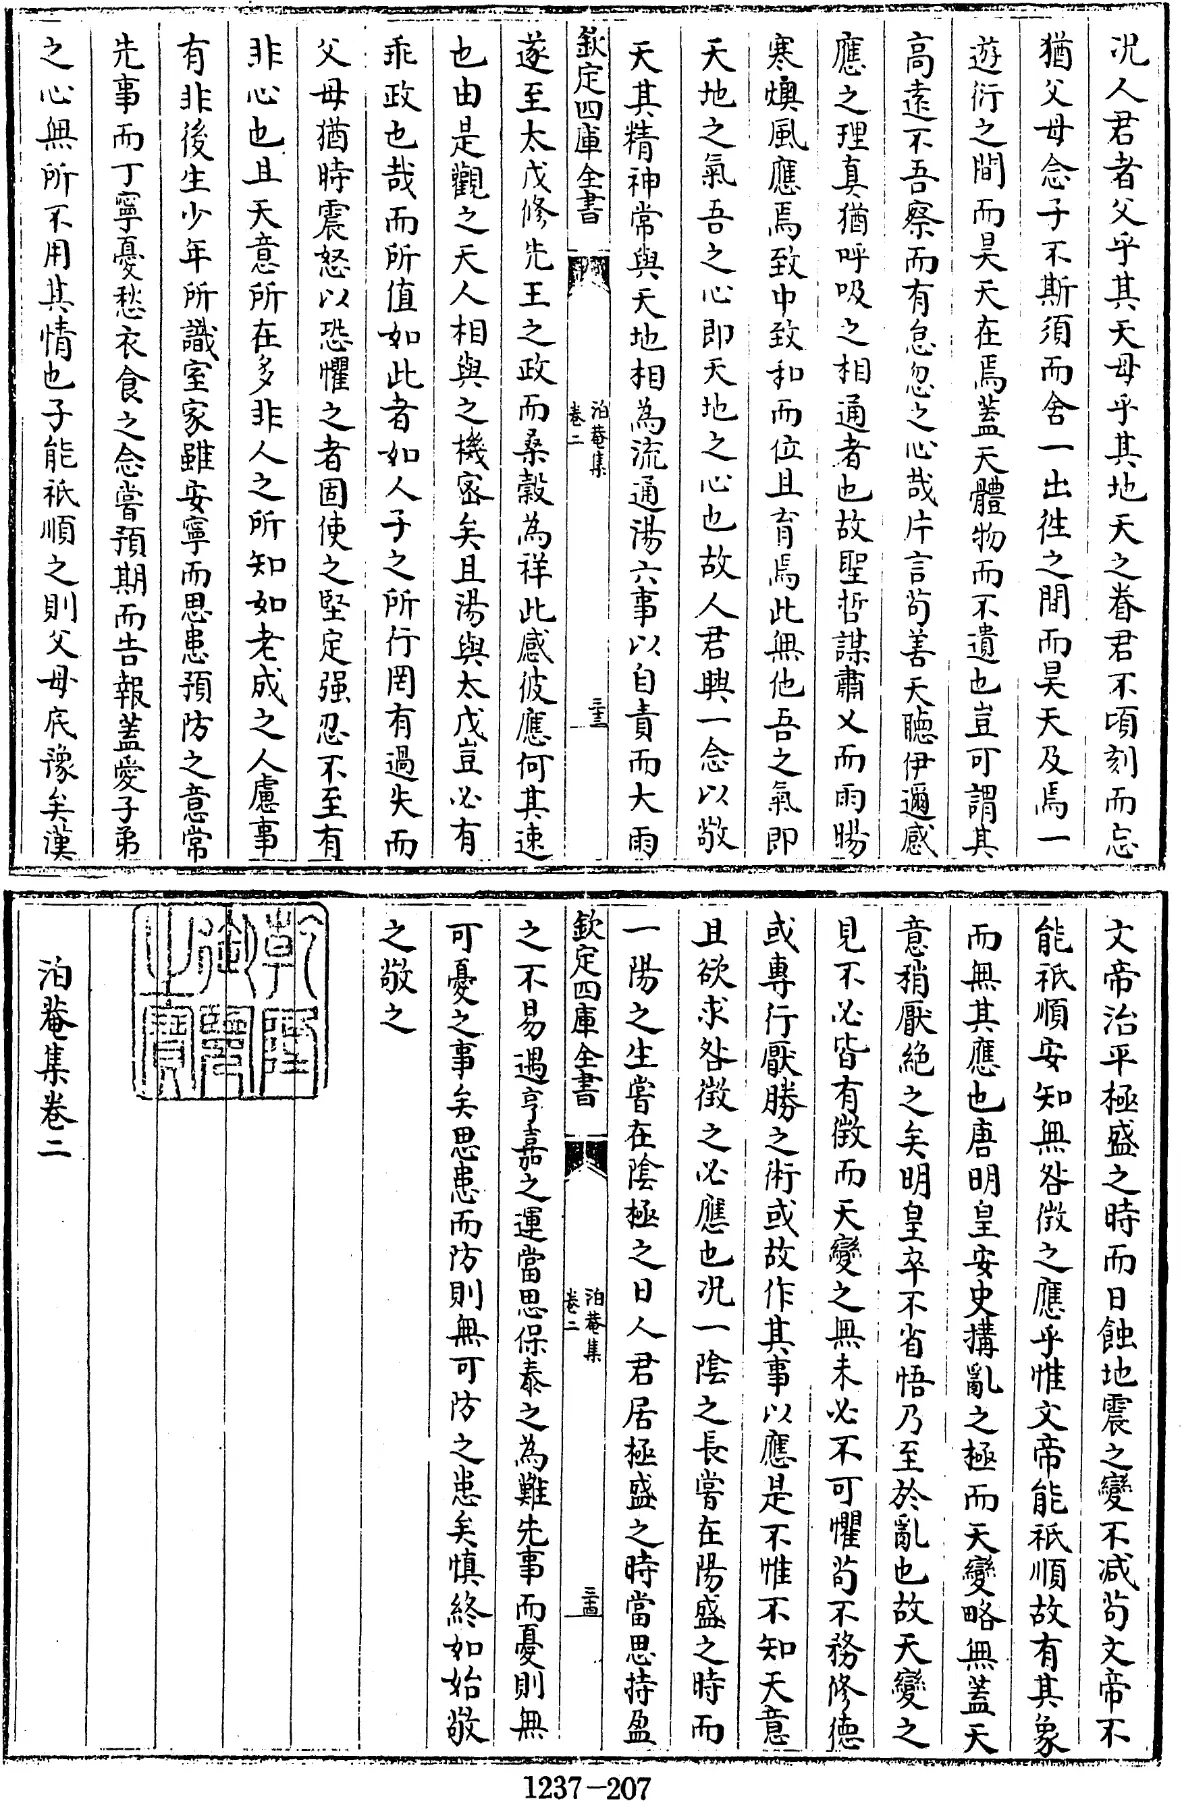 况人君者父乎其天母乎其地天之眷君不頃刻而忘
猶父母念子不斯須而舍一出徃之間而昊天及焉一
遊衍之間而昊天在焉蓋天體物而不遺也豈可謂其
高遠不吾察而有怠忽之心哉片言茍善天聽伊邇感
應之理真猶呼吸之相通者也故聖哲謀肅乂而雨暘
寒燠風應焉致中致和而位且育焉此無他吾之氣即
天地之氣吾之心即天地之心也故人君興一念以敬
天其精神常與天地相為流通湯六事以自責而大雨
欽定四庫全書
泊菴集
卷二
三十三
遂至太戊修先王之政而桑榖為祥此感彼應何其速
也由是觀之天人相與之機密矣且湯與太戊豈必有
乖政也哉而所值如此者如人子之所行罔有過失而
父母猶時震怒以恐懼之者固使之堅定强忍不至有
非心也且天意所在多非人之所知如老成之人慮事
有非後生少年所識室家雖安寧而思患預防之意常
先事而丁寧憂愁衣食之念嘗預期而告報蓋愛子弟
之心無所不用其情也子能祇順之則父母底豫矣漢
文帝治平極盛之時而日蝕地震之變不減茍文帝不
能祇順安知無咎徴之應乎惟文帝能祇順故有其象
而無其應也唐明皇安史搆亂之極而天變略無蓋天
意稍厭絶之矣明皇卒不省悟乃至於亂也故天變之
見不必皆有徴而天變之無未必不可懼茍不務修德
或專行厭勝之術或故作其事以應是不惟不知天意
且欲求咎徴之必應也况一陰之長嘗在陽盛之時而
一陽之生嘗在陰極之日人君居極盛之時當思持盈
欽定四庫全書
泊菴集
卷二
三十四
之不易遇亨嘉之運當思保泰之為難先事而憂則無
可憂之事矣思患而防則無可防之患矣慎終如始敬
之敬之
乾隆御覽之寶
泊菴集卷二
1237-207